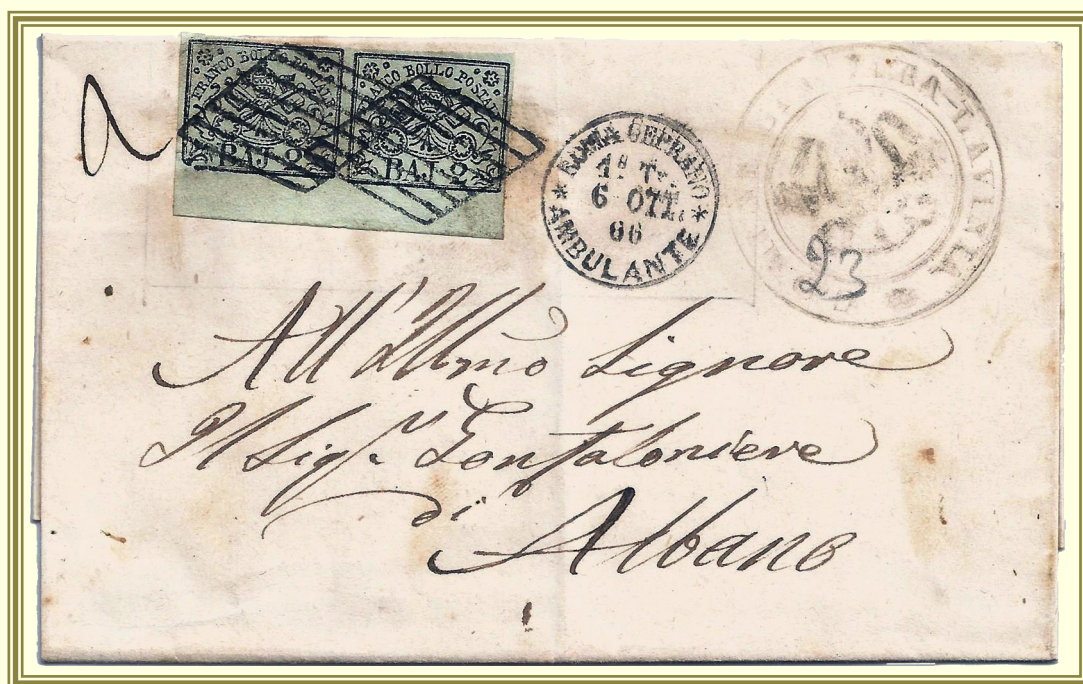 FRANCO BOLLO POSTALE
BAJ 2
FRANCO BOLLO POSTALE
BAJ 2
2
ROMA CEPRANO
1ª Tª.
6 OTT.
66
* AMBULANTE *
LAVINIA
23
All'Illmo Signore
Il Sigr. Gonfaloniere
di
Albano